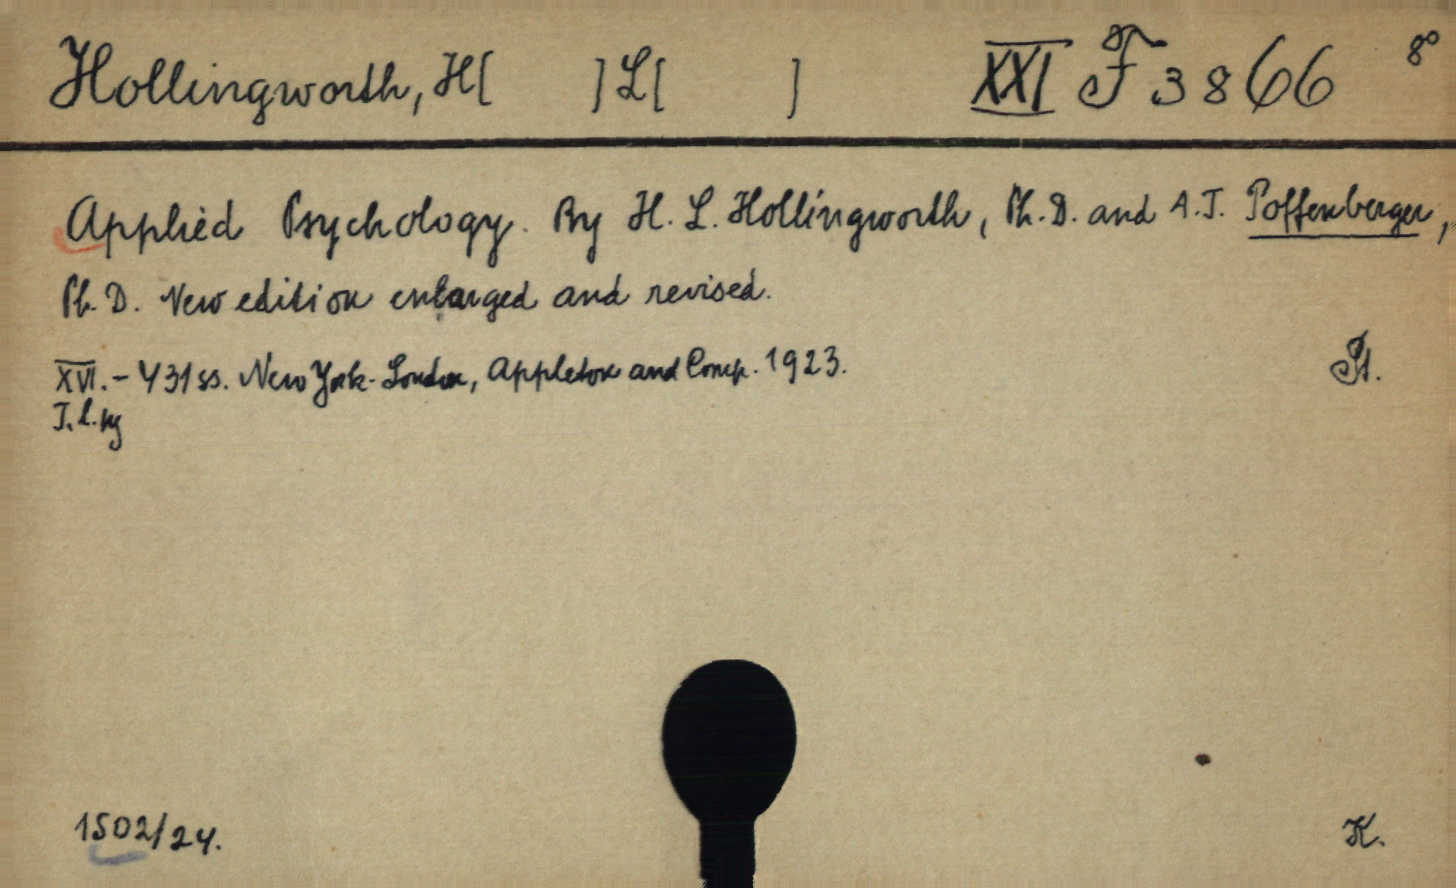 Hollingworth, H[ ] L[ ] XXI F 3866 8°
Applied Psychology. By H. L. Hollingworth, Ph. D. and A. T. Poffenberger,
Ph. D. New edition enlarged and revised.
XVI. - 431 ss. New York - London, Appleton and Comp. 1923. St.
1502/24. K.